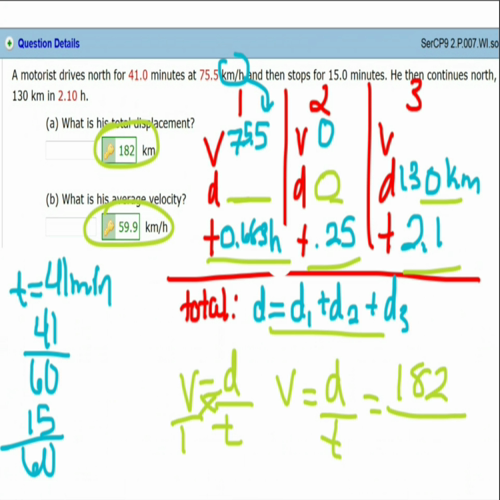 Question Details
SerCP9 2.P.007.WI.so
A motorist drives north for 41.0 minutes at 75.5 km/h and then stops for 15.0 minutes. He then continues north,
130 km in 2.10 h.
(a) What is his total displacement?
182 km
(b) What is his average velocity?
59.9 km/h
1 2 3
v 75.5 v 0 v
d __ d 0 d 130 km
t 0.663h t .25 t 2.1
total: d = d1 + d2 + d3
t = 41min
41
60
15
60
v = d
1 t
v = d = 182
t